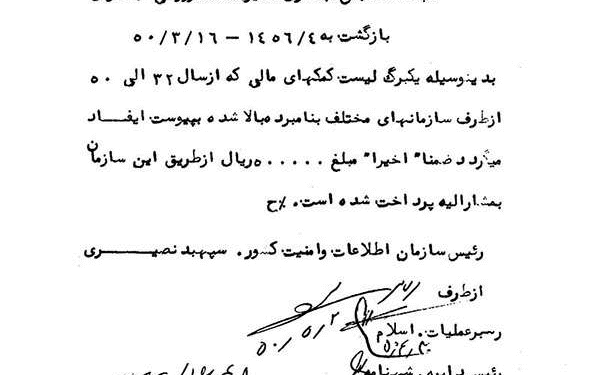 بازگشت به ۱۴۵۶/۴ – ۵۰/۳/۱۶
بدینوسیله یکبرگ لیست کمکهای مالی که ازسال ۳۲ الی ۵۰
ازطرف سازمانهای مختلف بنامبرده بالا شده بپیوست ایفاد
میگردد ضمنا" اخیرا" مبلغ ۵۰۰۰۰۰ریال ازطریق این سازمان
بمشارالیه پرداخت شده است. ح٪
رئیس سازمان اطلاعات وامنیت کشور. سپهبد نصیری
ازطرف
۵۰/۵/۲
رهبرعملیات. اسلام